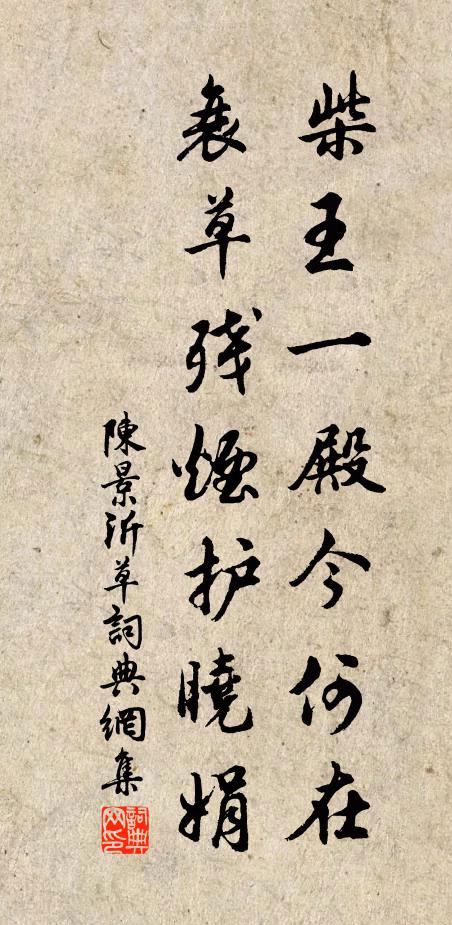 柴王一殿今何在
衰草残烟护曉娟
陳景沂草詞典網集
詞典网印